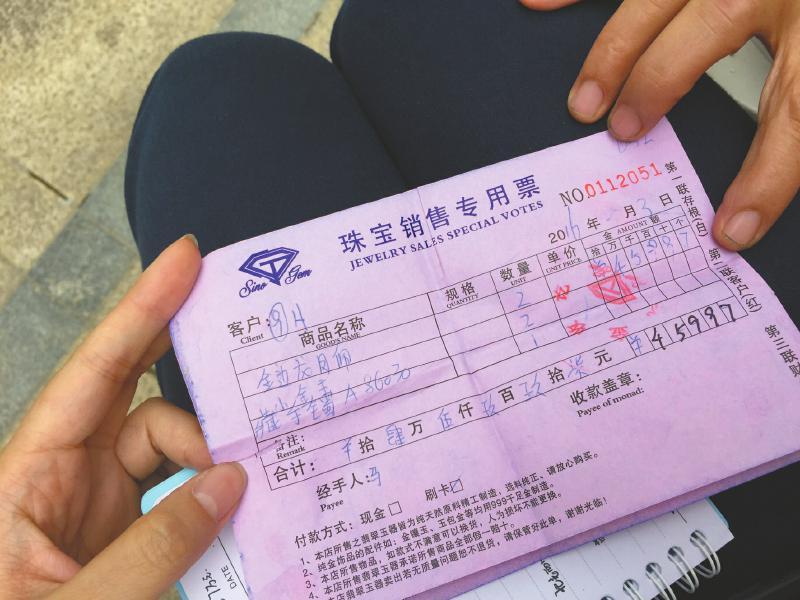 珠宝销售专用票
JEWELRY SALES SPECIAL VOTES
NO.0112051
Sino Gem
2016年 月3日
客户:
Client
商品名称
GOOD'S NAME
规格
QUANTITY
数量
UNIT
单价
UNIT PRICE
金 AMOUNT 额
拾万千百十个
45997
2
2
1
A 3600
备注:
Remark
¥45997
合计: 拾肆万伍仟玖百玖拾柒元
收款盖章:
Payee of monad:
经手人:冯
Payee
付款方式: 现金□ 刷卡☑
1、本店所售之翡翠玉器皆为纯天然原料精工制造,选料纯正、请放心购买。
2、纯金饰品的配件如:金镶玉、玉包金等均用999千足金制造。
3、本店所售物品,如款式不满意可以换货,人为损坏不能更换。
4、本店所售翡翠玉器承诺所售商品全部假一赔十。
本店翡翠玉器卖出若无质量问题恕不退货,请保管好此单,谢谢光临!
第一联存根(白)
第二联客户(红)
第三联财
DATE